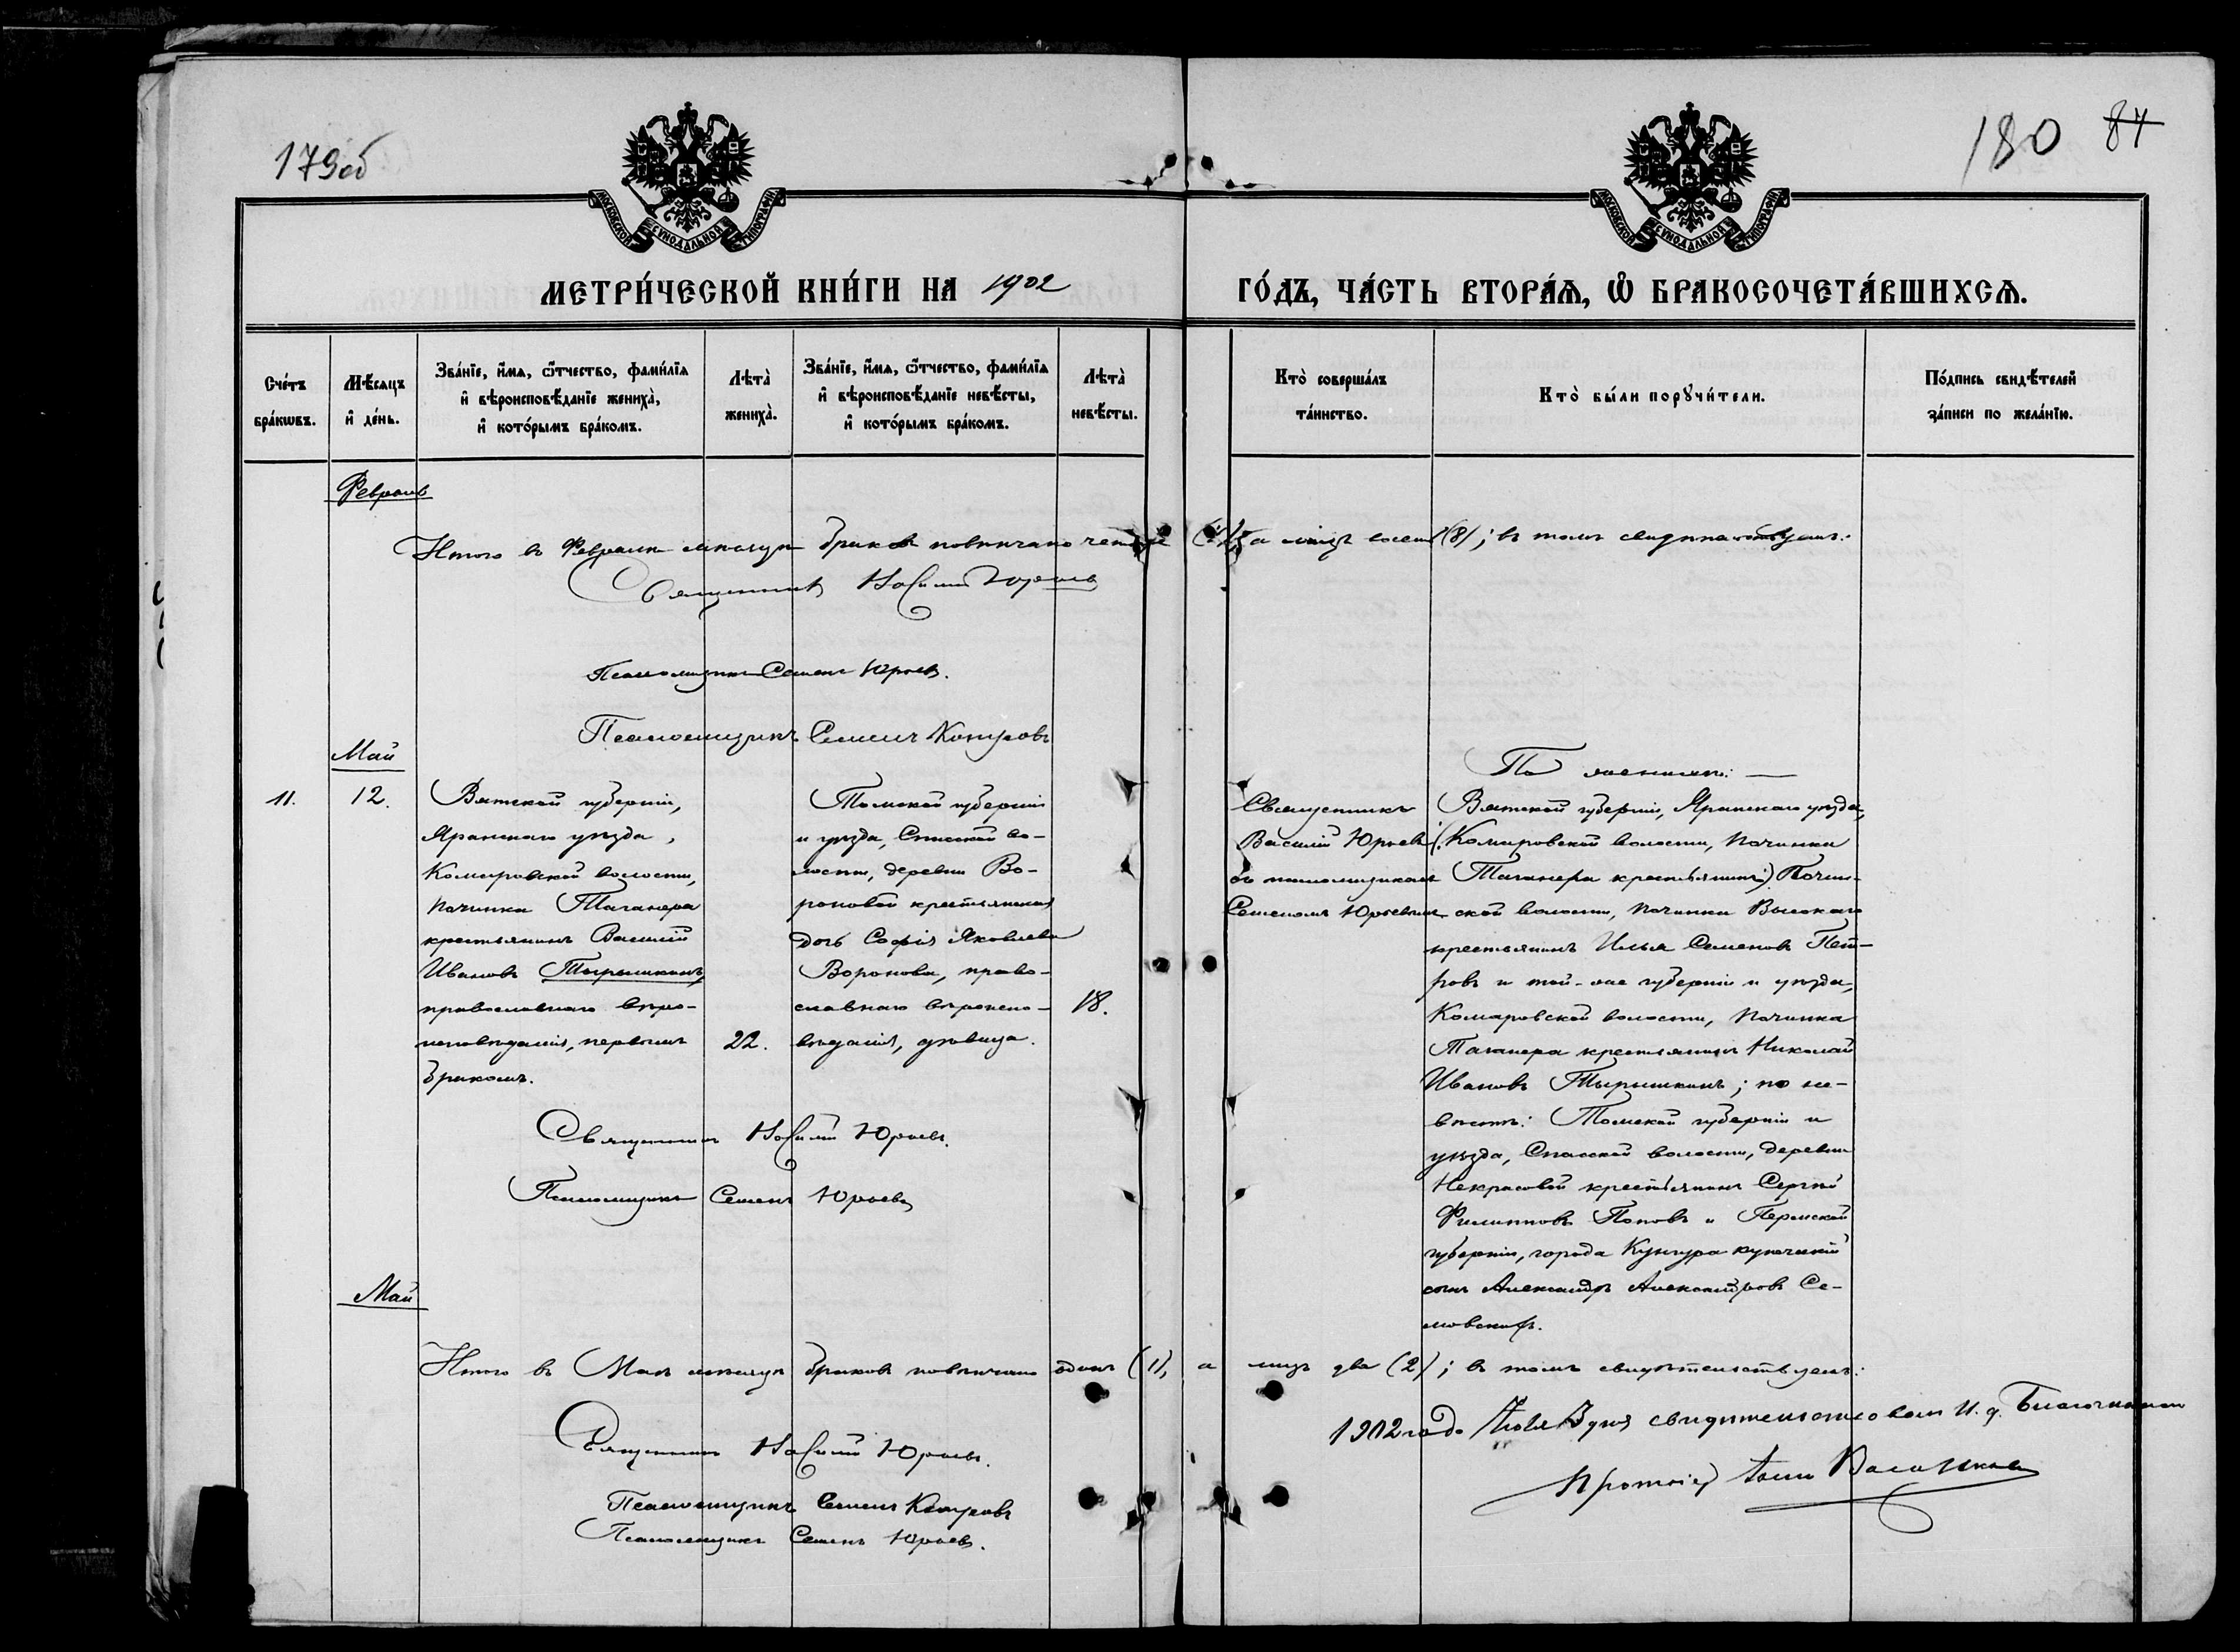 179об
180 84
МОСКОВСКОЙ СѴНОДАЛЬНОЙ ТИПОГРАФІИ
МОСКОВСКОЙ СѴНОДАЛЬНОЙ ТИПОГРАФІИ
МЕТРИ́ЧЕСКОЙ КНИ́ГИ НА 1902
ГО́ДЪ, ЧА́СТЬ ВТОРА́Ѧ, Ѽ БРАКОСОЧЕТА́ВШИХСѦ.
Сче́тъ
бра́кѡвъ.
Мѣ́сѧцъ
и҆ де́нь.
Зва́нїе, и҆́мѧ, ѻ҆́тчество, фами́лїѧ
и҆ вѣроисповѣ́данїе жениха̀,
и҆ кото́рымъ бра́комъ.
Лѣта̀
жениха̀.
Зва́нїе, и҆́мѧ, ѻ҆́тчество, фами́лїѧ
и҆ вѣроисповѣ́данїе невѣ́сты,
и҆ кото́рымъ бра́комъ.
Лѣта̀
невѣ́сты.
Кто̀ соверша́лъ
та́инство.
Кто̀ бы́ли порꙋчи́тели.
По́дпись свидѣ́телей
за́писи по жела́нїю.
Февраль
Итого въ Февралѣ мѣсяцѣ браковъ повѣнчано четыре (4), а лицъ восемь (8); въ томъ свидѣтельствуемъ:
Священникъ Василій Юрьевъ
Псаломщикъ Семенъ Юрьевъ.
Псаломщикъ Семенъ Котуровъ
Май
11.
12.
Вятской губерніи,
Яранскаго уѣзда,
Комаровской волости,
починка Таганера
крестьянинъ Василій
Ивановъ Тырышкинъ,
православнаго вѣро-
исповѣданія, первымъ
бракомъ.
22.
Томской губерніи
и уѣзда, Спасской во-
лости, деревни Во-
роновой крестьянская
дочь Софія Яковлева
Воронова, право-
славнаго вѣроиспо-
вѣданія, дѣвица.
18.
Священникъ
Василій Юрьевъ
съ псаломщикомъ
Семеномъ Юрьевымъ
По женихѣ:
Вятской губерніи, Яранскаго уѣзда,
(Комаровской волости, починка
Таганера крестьянинъ)
ской волости, починка Высокаго
крестьянинъ Илья Семеновъ Пет-
ровъ и той-же губерніи и уѣзда,
Комаровской волости, починка
Таганера крестьянинъ Николай
Ивановъ Тырышкинъ; по не-
вѣстѣ: Томской губерніи и
уѣзда, Спасской волости, деревни
Некрасовой крестьянинъ Сергій
Филипповъ Поповъ и Пермской
губерніи, города Кунгура купеческій
сынъ Александръ Александровъ Се-
Священникъ Василій Юрьевъ.
Псаломщикъ Семенъ Юрьевъ
Май
Итого въ Маѣ мѣсяцѣ браковъ повѣнчано одинъ (1), а лицъ два (2); въ томъ свидѣтельствуемъ:
Священникъ Василій Юрьевъ.
Псаломщикъ Семенъ Котуровъ
Псаломщикъ Семенъ Юрьевъ.
1902 года Іюля 3 дня свидѣтельствовалъ И. д. Благочиннаго
Протоіер